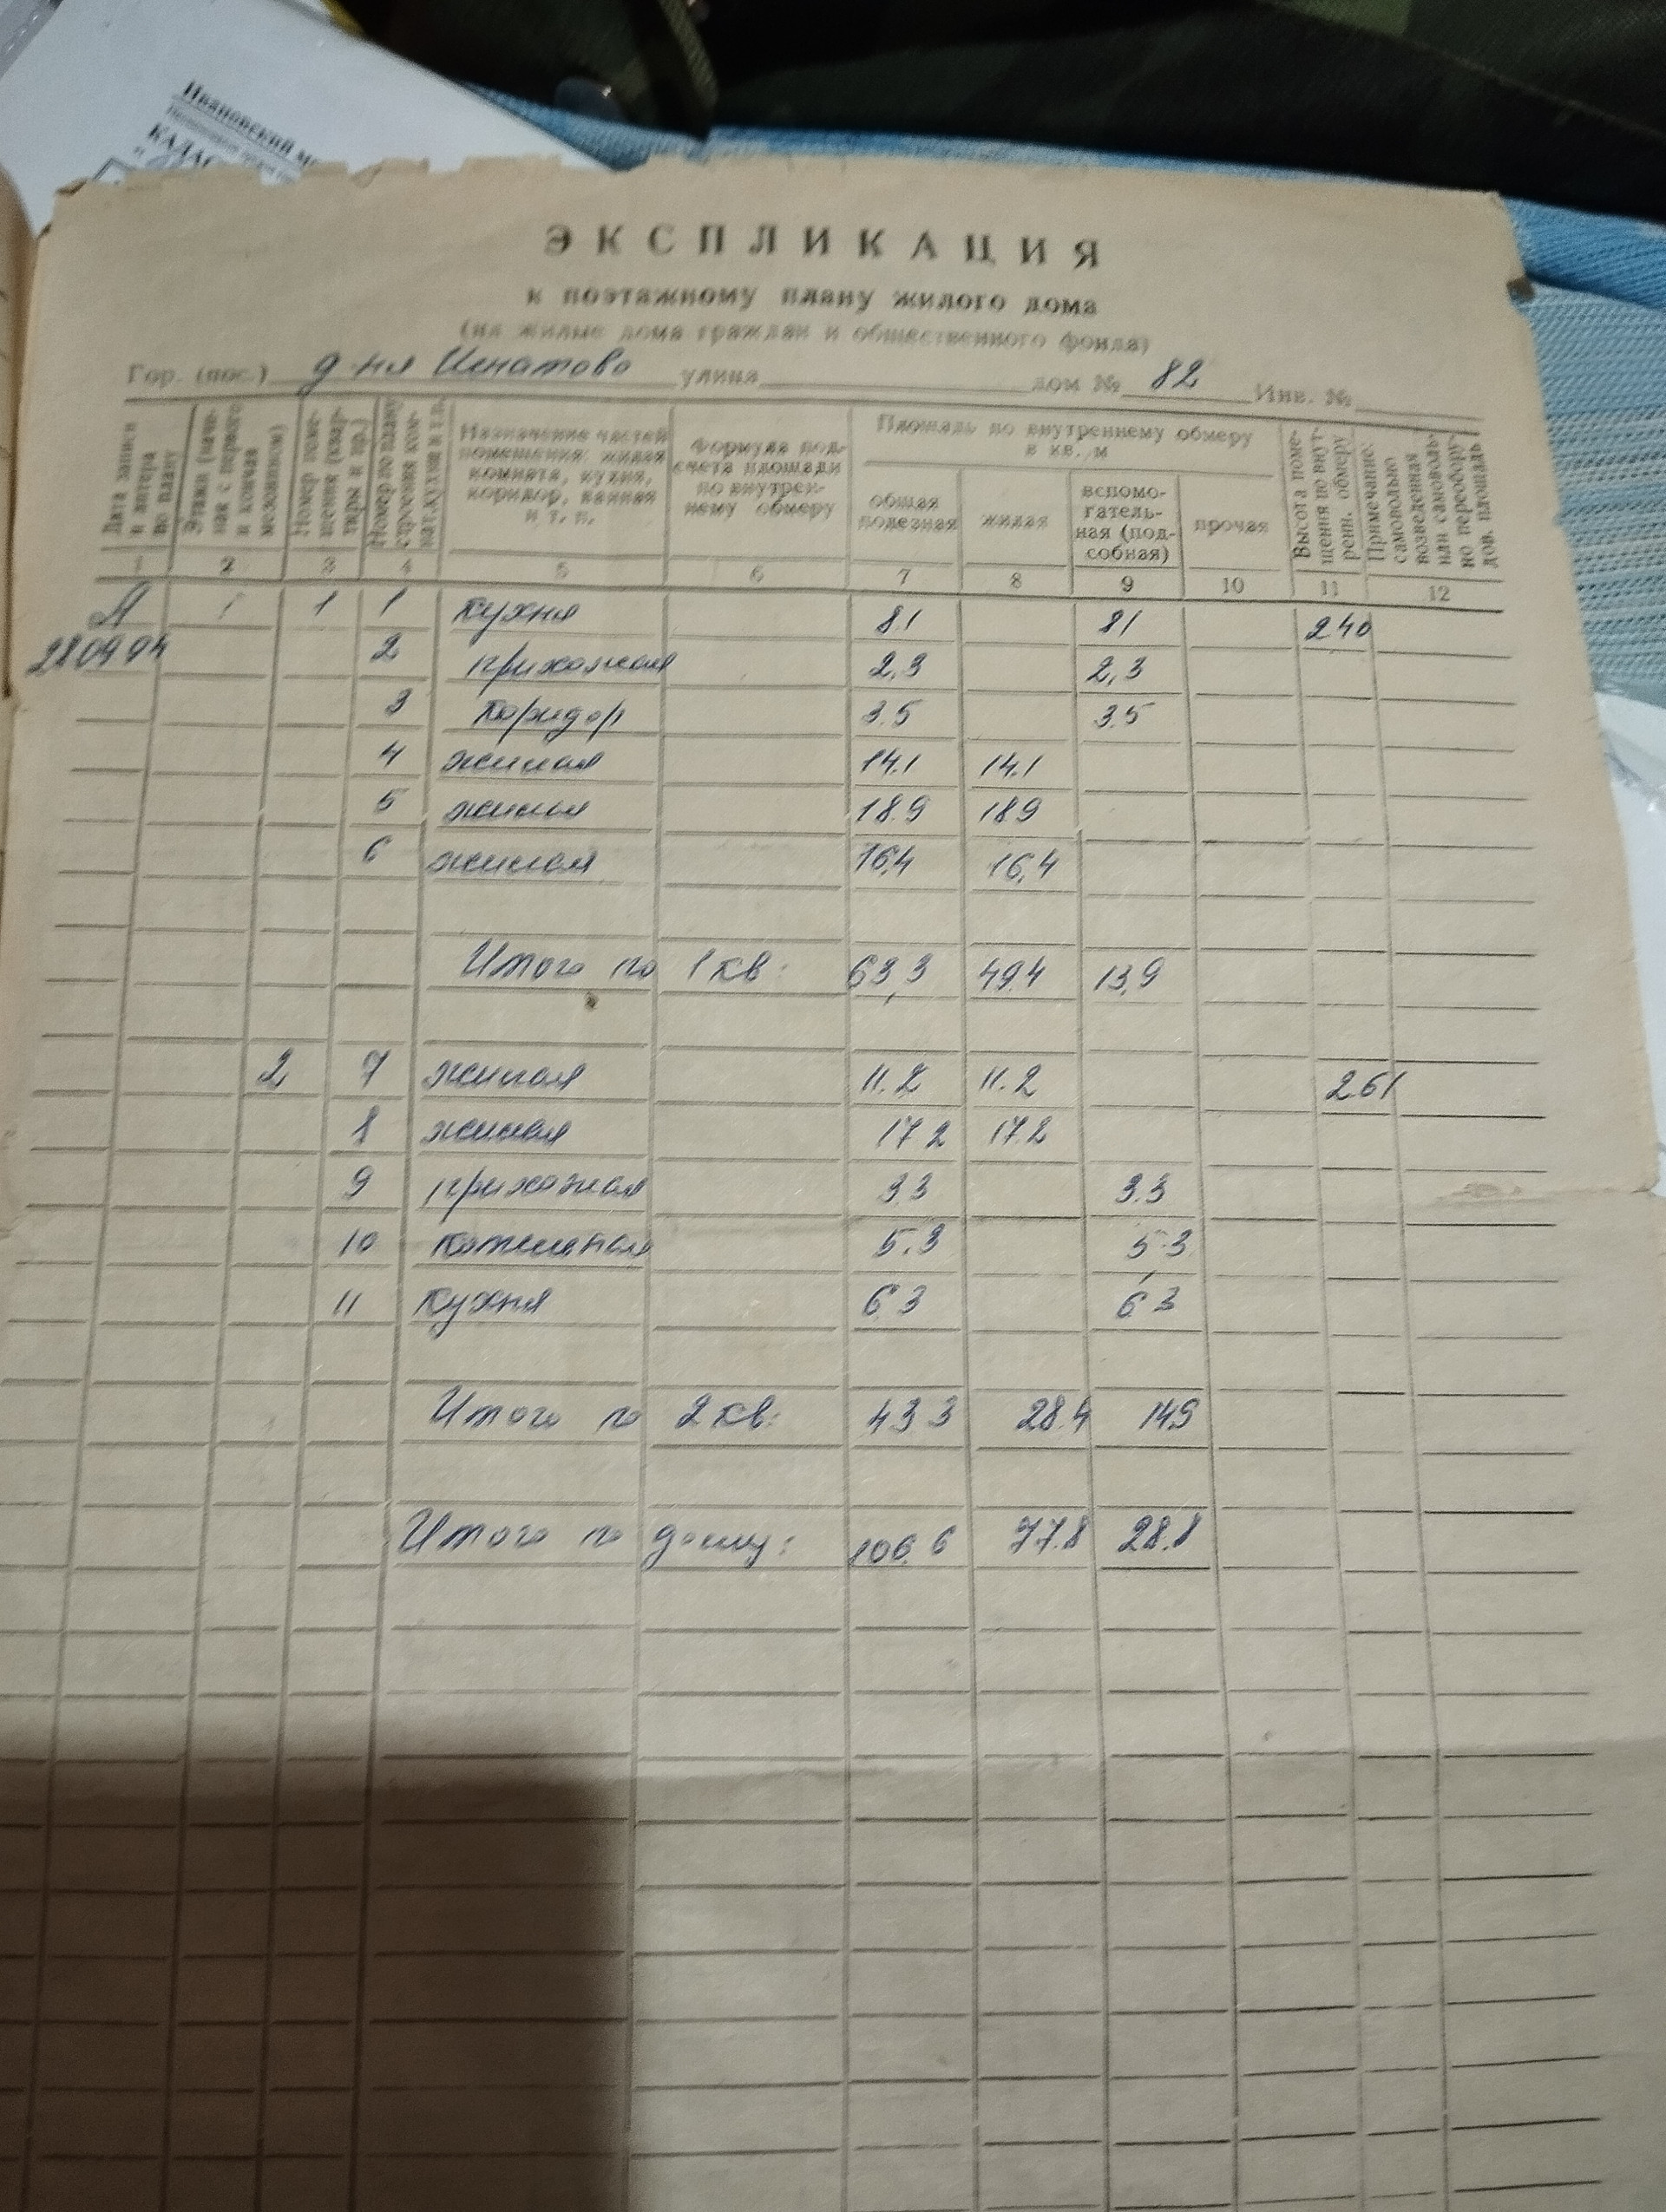 Ивановский
КАДАС
ЭКСПЛИКАЦИЯ
к поэтажному плану жилого дома
(на жилые дома граждан и общественного фонда)
Гор. (пос.) д-ня Игнатово улица дом № 82 Инв. №
Дата записи и литера по плану
Этажи (начиная с первого и кончая мезонином)
Номер помещения (квартиры и др.)
Номер по плану
Назначение частей помещения: жилая комната, кухня, коридор, ванная и т. п.
Формула подсчета площади по внутреннему обмеру
Площадь по внутреннему обмеру в кв. м
общая полезная
жилая
вспомогательная (подсобная)
прочая
Высота помещения по внутренн. обмеру
Примечание: самовольно возведенная или самовольно переоборудов. площадь
1 2 3 4 5 6 7 8 9 10 11 12
А 1 1 1 Кухня 8.1 8 1 2 40
28 09 94 2 прихожая 2,3 2,3
3 Коридор 3.5 3.5
4 жилая 14.1 14.1
5 жилая 18.9 18 9
6 жилая 16,4 16,4
Итого по 1 кв. 63,3 49.4 13,9
2 7 жилая 11.2 11.2 2.61
8 жилая 17 2 17.2
9 прихожая 3 3 3.3
10 5.3 5.3
11 Кухня 6 3 6 3
Итого по 2 кв: 43 3 28.4 14.9
Итого по дому: 106.6 77.8 28.8